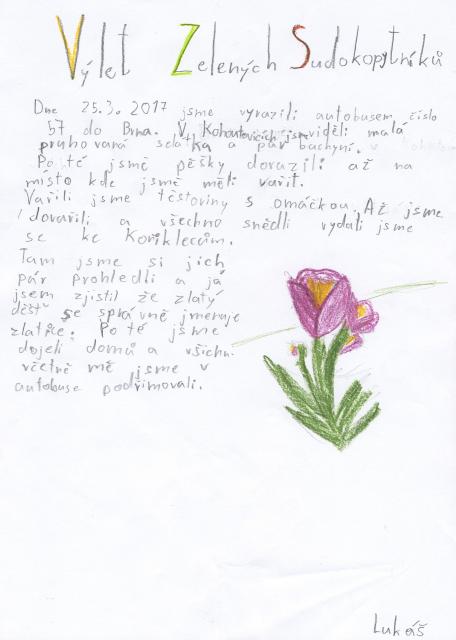 Výlet Zelených Sudokopytníků
Dne 25.3. 2017 jsme vyrazili autobusem číslo
57 do Brna. V Kohoutovicích jsme viděli malá
pruhovaná selátka a pár bachyní.
Po té jsmě pěšky dorazili až na
místo kde jsmě měli vařit.
Vařili jsme těstoviny s omáčkou. Až jsme
dovařili a všechno snědli vydali jsme
se ke Koniklecům.
Tam jsme si jich
pár prohledli a já
jsem zjistil že zlatý
déšť se správně jmenuje
zlatice. Po té jsme
dojeli domů a všichni
včetně mě jsme v
autobuse podřimovali.
Lukáš